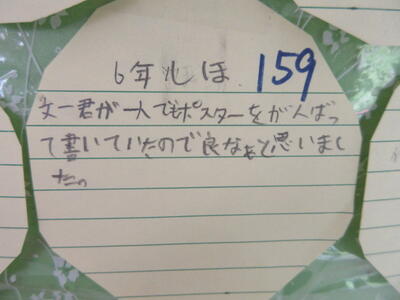 6年しほ 159
文一君が一人でもポスターをがんばっ
て書いていたので良なぁと思いまし
た。